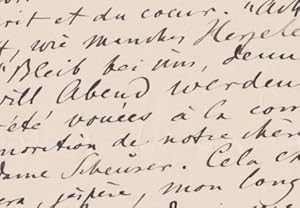 rit et du coeur. "Ach
t, wie manches Herzele
"Bleib bei uns, denn
will Abend werden
été vouées à la com
morition de notre chèr
dame Scheuser. Cela e
era, j'espère, mon long